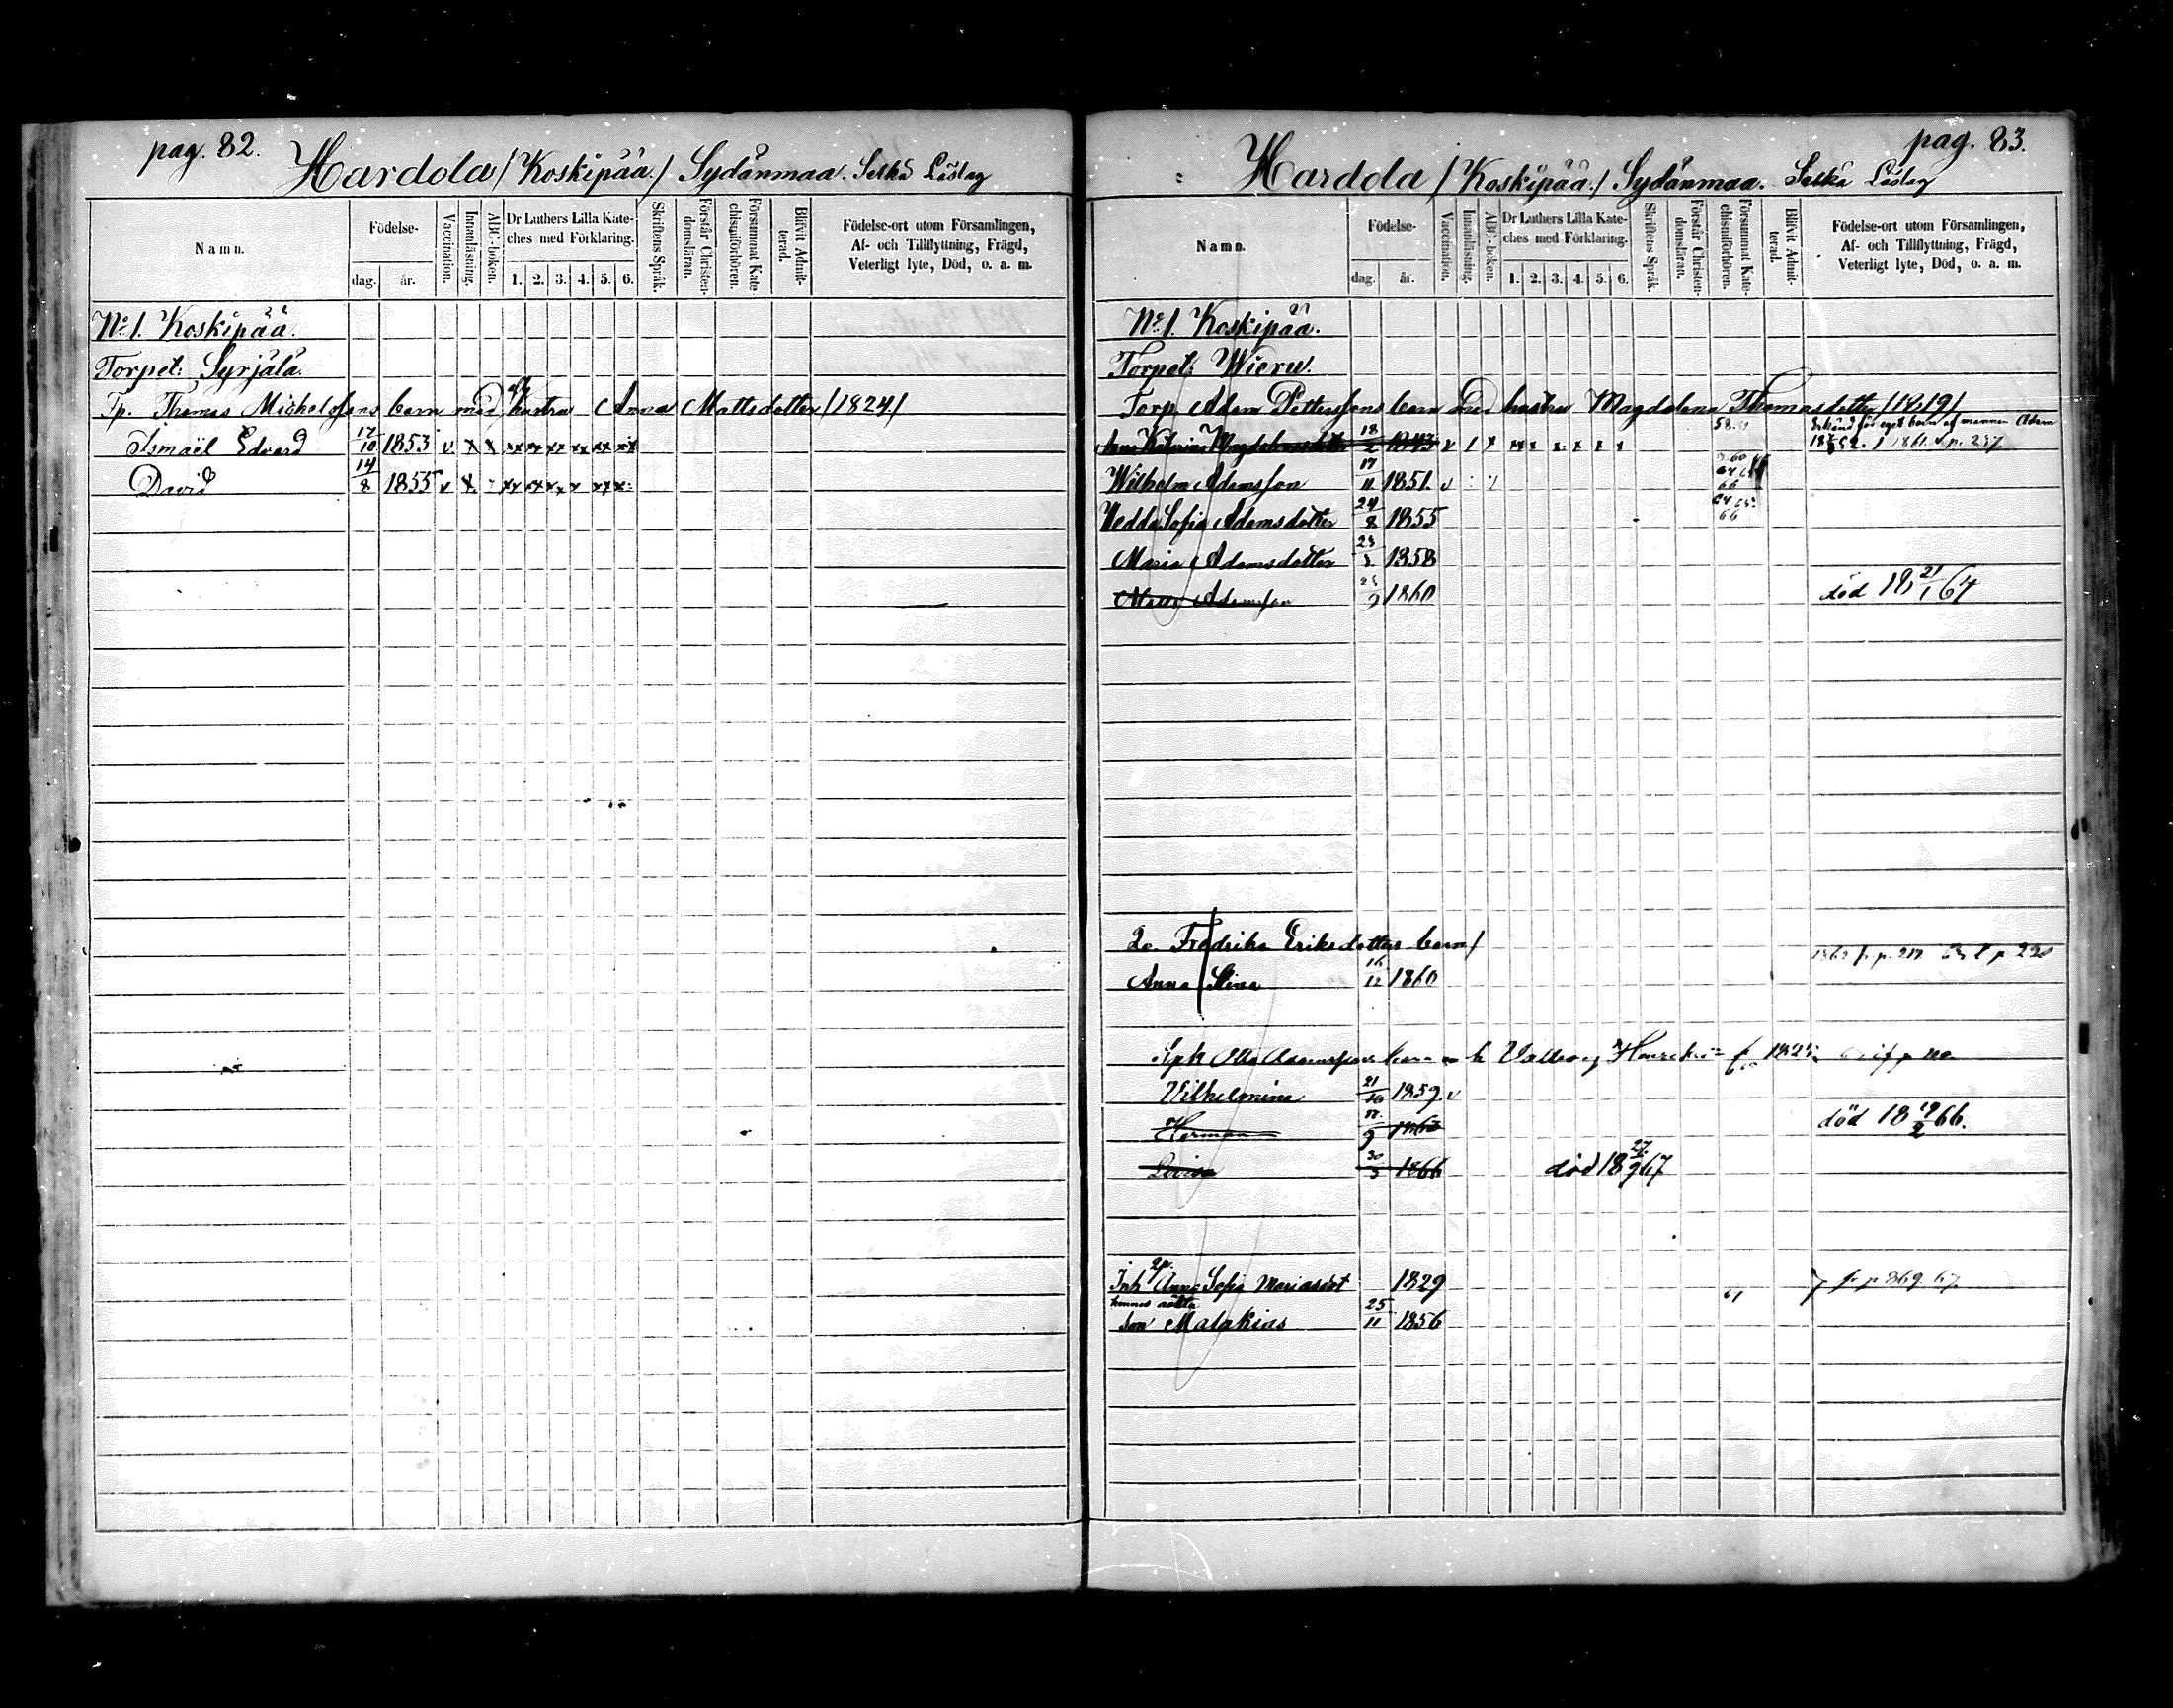 pag. 82.
Hardola /Koskipää./ Sydänmaa. Selkä Läslag
Namn.
Födelse-
dag.
år.
Vaccination.
Innanläsning.
ABC-boken.
Dr Luthers Lilla Kate-
ches med Förklaring.
1. 2. 3. 4. 5. 6.
Skriftens Språk.
Förstår Christen-
domsläran.
Försummat Kate-
chismiförhören.
Blifvit Admit-
terad.
Födelse-ort utom Församlingen,
Af- och Tillflyttning, Frägd,
Veterligt lyte, Död, o. a. m.
No 1. Koskipää.
Torpet: Syrjälä.
Tp. Thomas Michelssons barn med hustru Anna Mattsdotter /1824/
Ismaël Edvard 17/10 1853 v x x xx xx xx xx xx xx
David 14/8 1855 v x
pag. 83.
Hardola /Koskipää./ Sydänmaa. Selkä Läslag
Namn.
Födelse-
dag.
år.
Vaccination.
Innanläsning.
ABC-boken.
Dr Luthers Lilla Kate-
ches med Förklaring.
1. 2. 3. 4. 5. 6.
Skriftens Språk.
Förstår Christen-
domsläran.
Försummat Kate-
chismiförhören.
Blifvit Admit-
terad.
Födelse-ort utom Församlingen,
Af- och Tillflyttning, Frägd,
Veterligt lyte, Död, o. a. m.
No 1. Koskipää.
Torpet: Wieru.
Torp. Adam Petterssons barn med hustru Magdalena Thomasdotter /1819/
Erkänd för eget barn af mannen Adam
Anna Katarina Magdalenasdotter 18/2 1843 v 1861. p. 237
Wilhelm Adamsson 17/11 1851. v
66
Hedda Sofia Adamsdotter 24/8 1855
64 65
66
Maria Adamsdotter 1858
Matts Adamsson 1860 död 18 21/1 64
Fredrika Eriksdotters barn/
Anna Stina 16/12 1860
Vilhelmina 21/10 1859. v
Herman 9 död 18 66.
Lovisa 30/3 1866 död 18 27/9 67
Inh Anna Sofia Mariasdot 1829 p 369. 67
hennes oäkta
son Malakias 25/11 1856